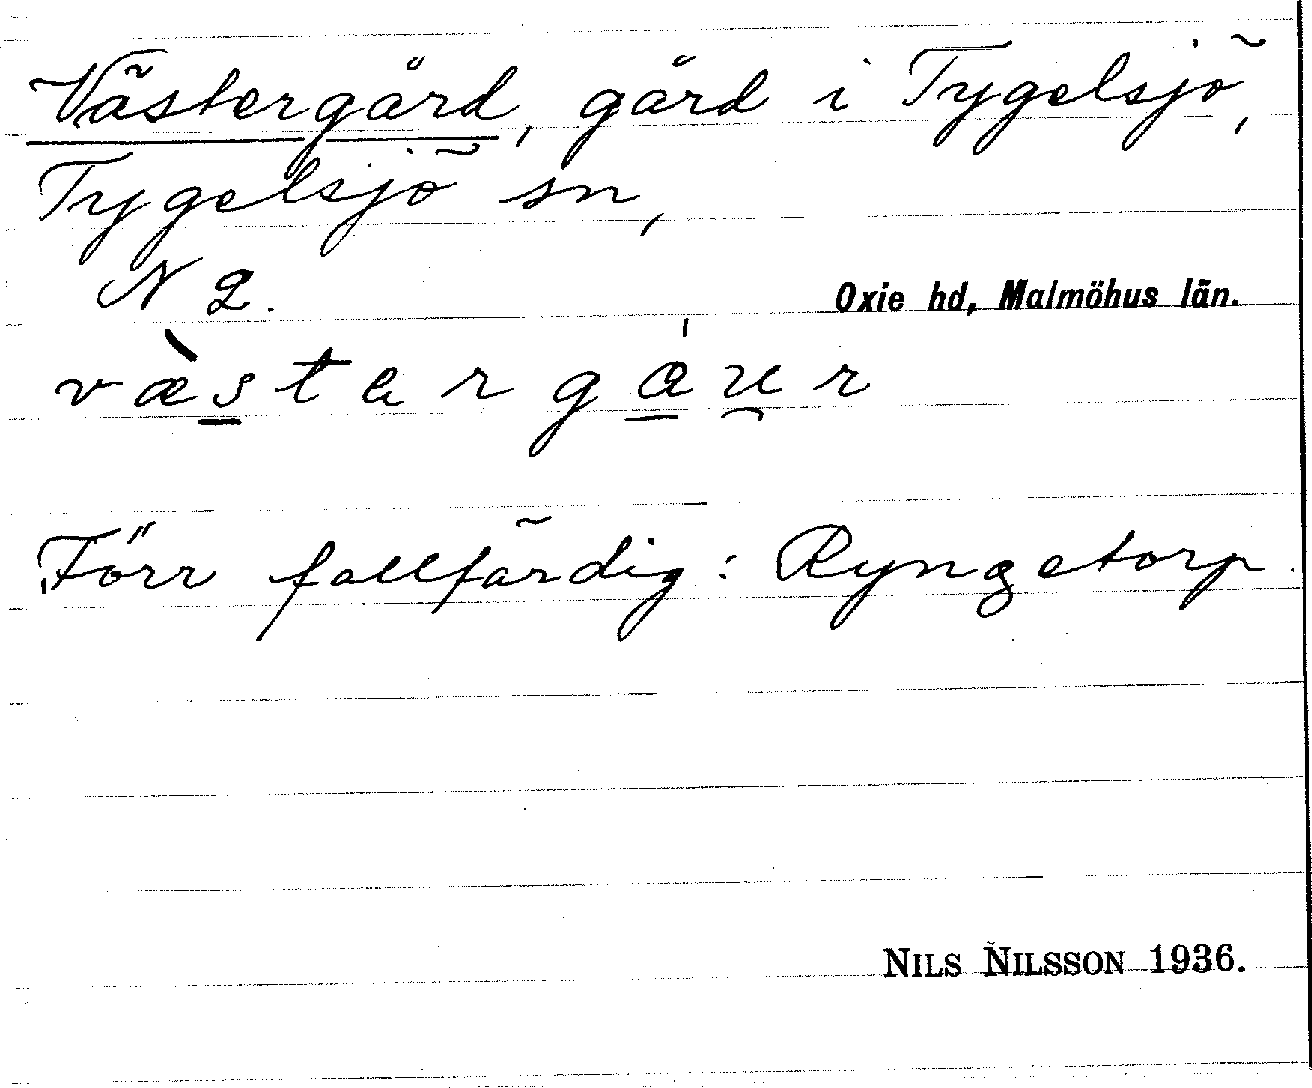 Västergård, gård i Tygelsjö,
Tygelsjö sn,
N 2.
Oxie hd, Malmöhus län.
Förr fallfärdig: Ryngetorp.
NILS NILSSON 1936.